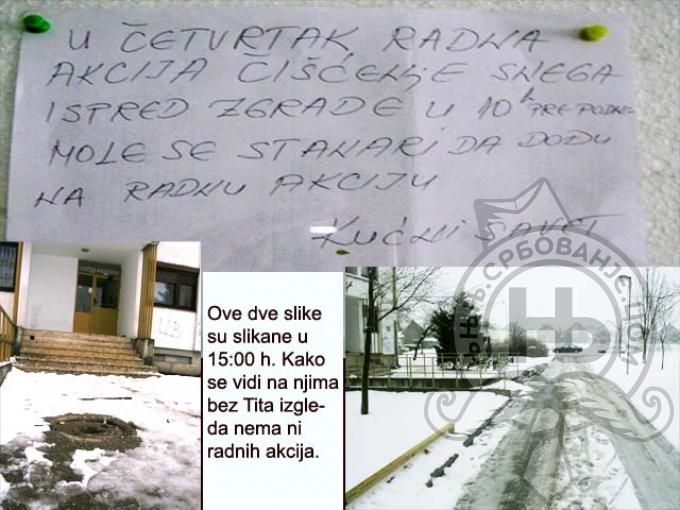 U ČETVRTAK RADNA
AKCIJA ČIŠĆENJE SNEGA
ISPRED ZGRADE U 10h PRE PODNE
MOLE SE STANARI DA DOĐU
NA RADNU AKCIJU
KUĆNI SAVET
Ove dve slike
su slikane u
15:00 h. Kako
se vidi na njima
bez Tita izgle-
da nema ni
radnih akcija.